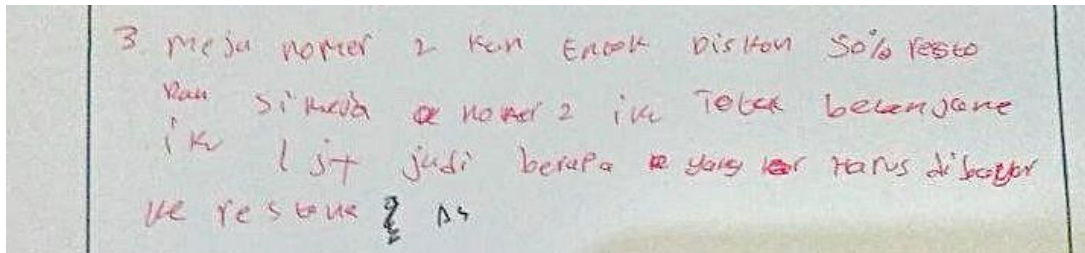 3 meja nomer 2 kan Entok Diskon 50% resto
Dan si meja nomer 2 iku Total belanjane
iku 1 jt jadi berapa yang harus dibayar
ke restone ?